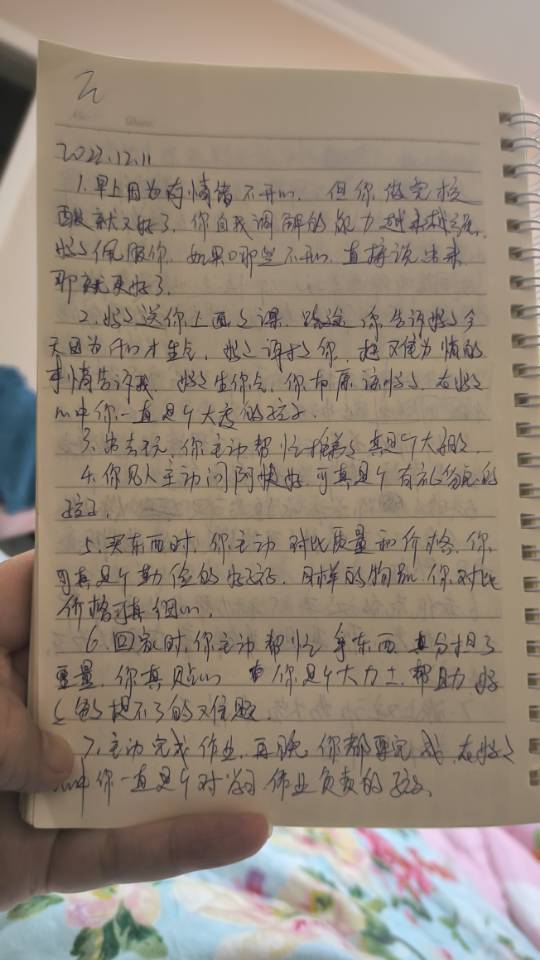 2022.12.11
1.早上因为有情绪不开心,但你做完核
酸就又好了,你自我调解的能力越来越强,
妈妈佩服你,如果哪里不开心,直接说出来
那就更好了.
2.妈妈送你上画画课,路途你告诉妈妈今
天因为什么才生气,妈妈误打了你,把难为情的
事情告诉我,妈妈生你气,你却原谅妈妈,在妈妈
心中你一直是个大度的孩子.
3.出去玩,你主动帮忙推 真是个大
4.你见人主动问阿姨好,可真是个有礼貌的
孩子.
5.买东西时,你主动对比质量和价格,你
可真是个勤俭的好孩子,同样的物品,你对比
价格可真细心.
6.回家时,你主动帮忙拿东西,分担了
重量,你真贴心 你是个大力士,帮助妈
妈 提不了的难题.
7.主动完成作业,再晚你都要完成,在妈妈
心中你一直是个对学习作业负责的孩子.